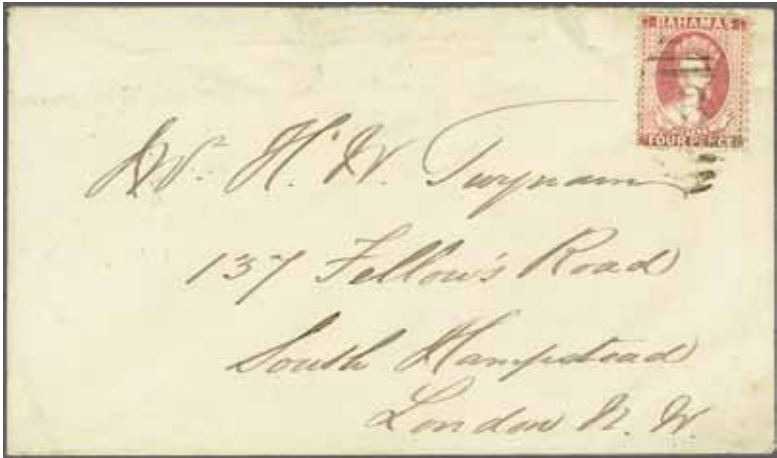 BAHAMAS
FOUR PENCE
Mr. H. W. Twynam
137 Fellow's Road
South Hampstead
London N. W.